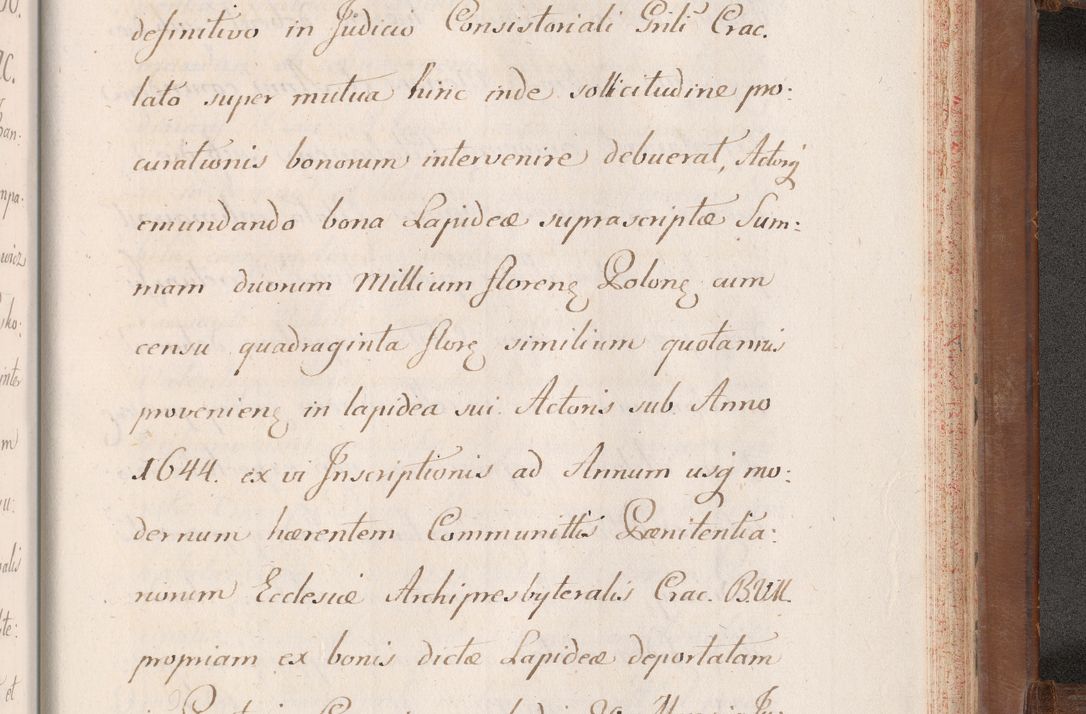 definitivo in Judicio Consistoriali Grili Crac.
lato super mutua hinc inde sollicitudine pro:
curationis bonorum intervenire debuerat, Actorq́
emundando bona Lapideæ suprascriptæ Sum:
mam duorum Millium florenę Polonę cum
censu quadraginta florę similium quotannis
provenienę in lapidea sui Actoris sub Anno
1644. ex vi Inscriptionis ad Annum usq́ mo:
dernum hærentem Communittis Pænitentia:
riorum Ecclesiæ Archipresbyteralis Crac. B.V.M.
propriam ex bonis dictæ Lapideæ deportatam